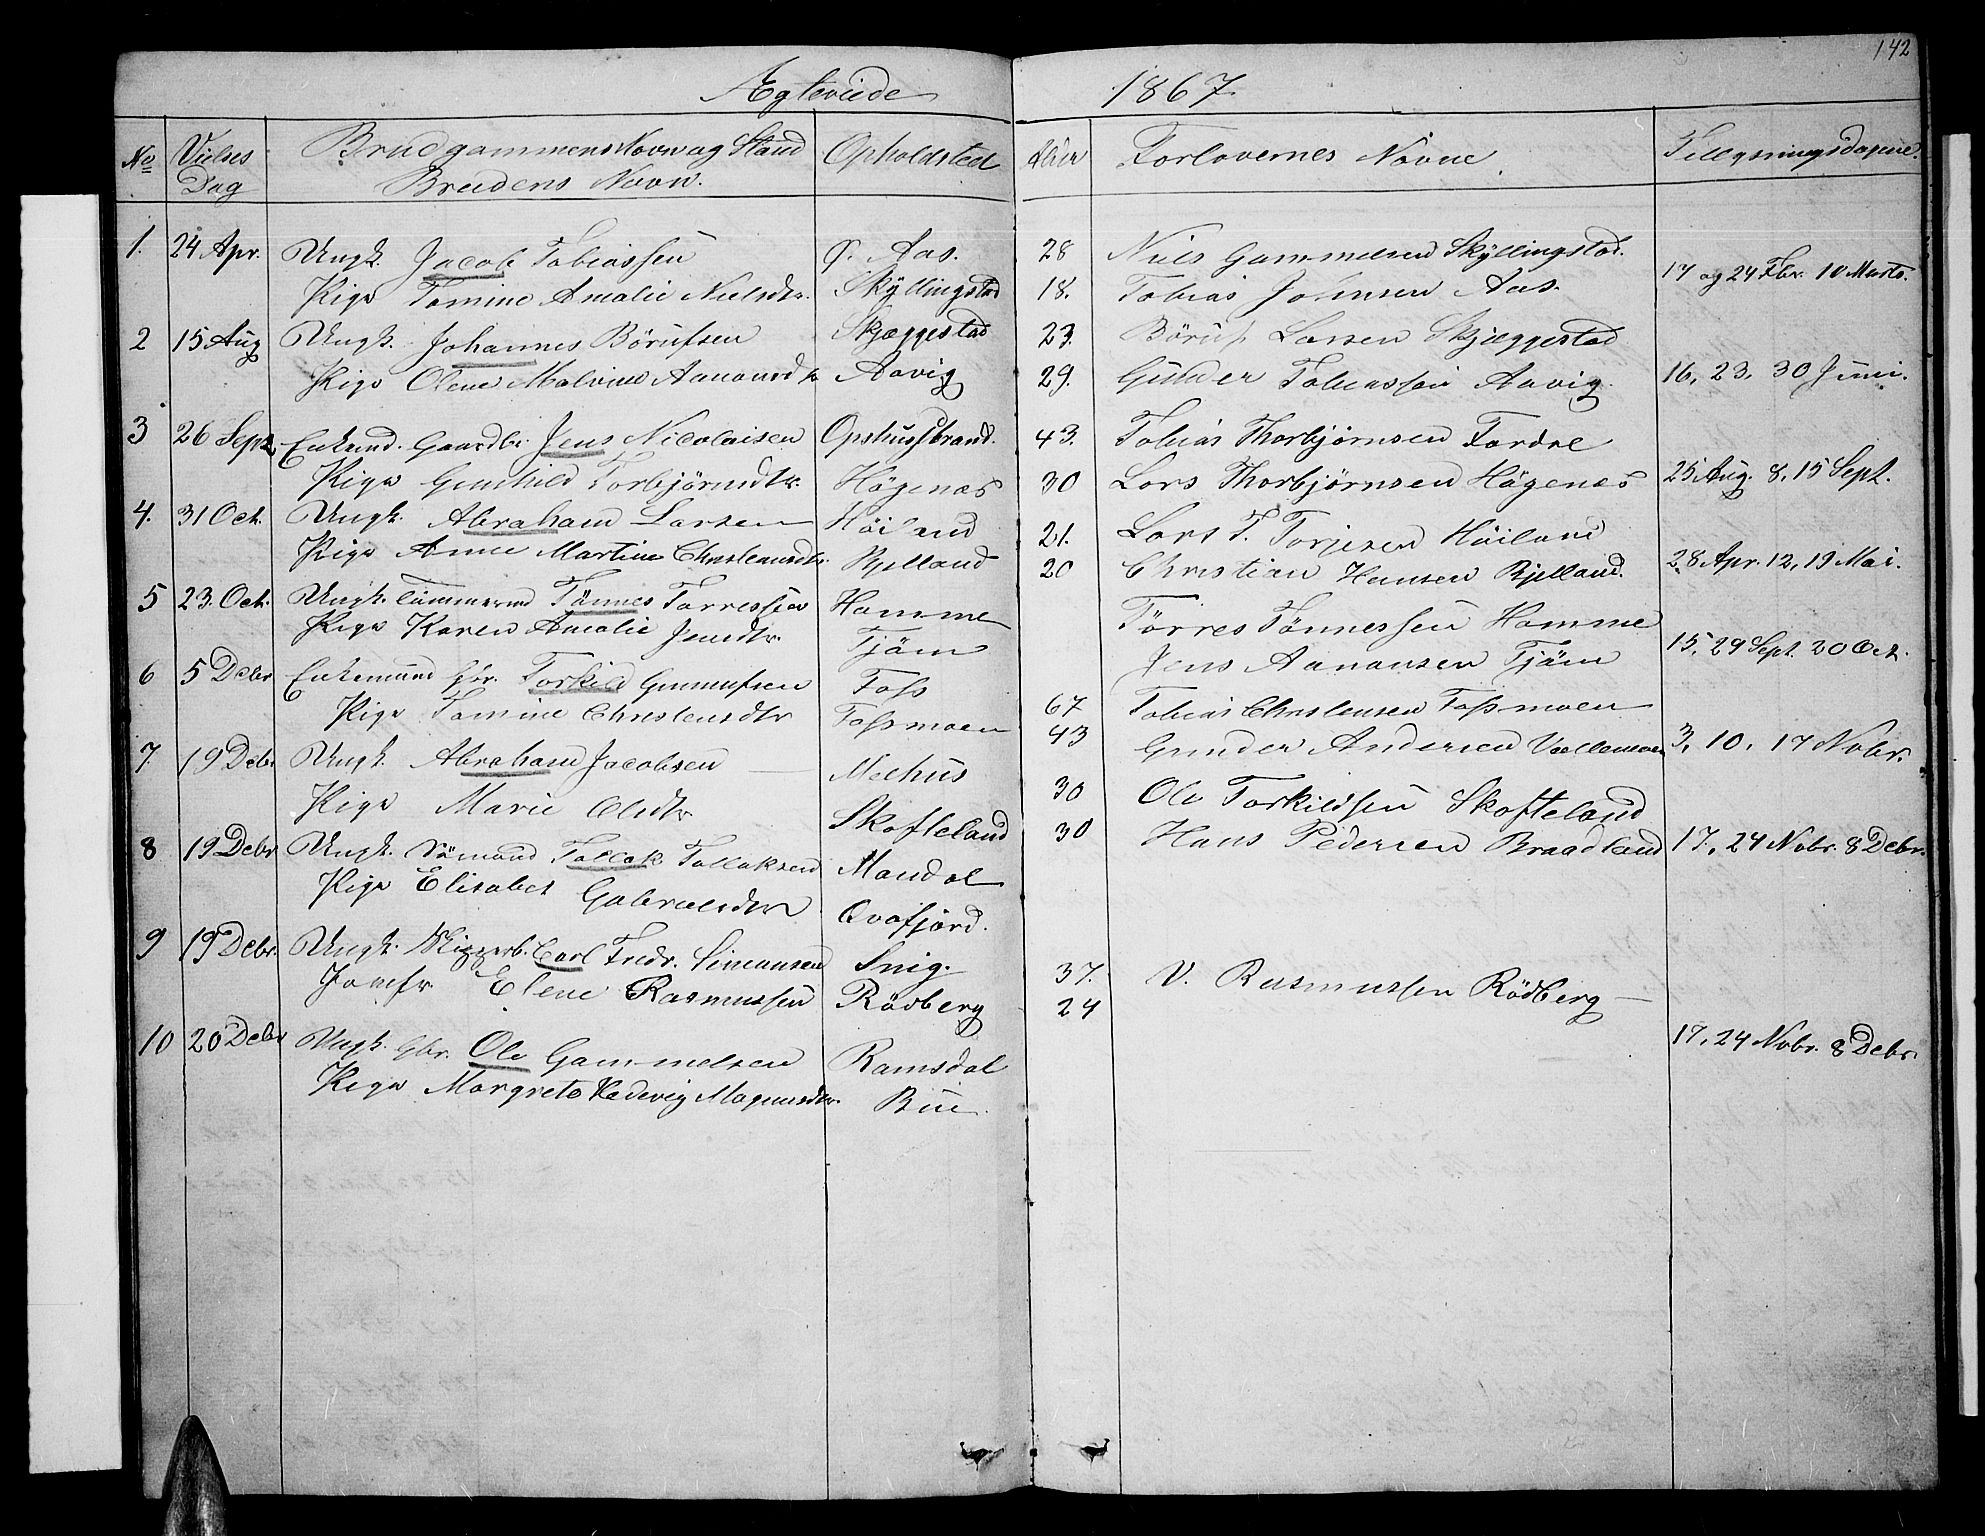 142
Ægteviede
1867
No
Vielses Dag
Brudgommens Navn og Stand
Brudens Navn.
Opholdsted
Alder
Forlovernes Navne
Tillysningsdagene.
1. 24 Apr. Ungk. Jacob Tobiassen Ø. Aas. 28 Niels Gammelsen Skyllingstad.
Pige Tomine Amalie Nielsdtr. Skyllingstad 18. Tobias Johnsen Aas. 17 og 24 Fbr. 10 Marts.
2 15 Aug Ungk. Johannes Börufsen Skjæggestad 23. Böruf Larsen Skjæggestad
Pige Olene Malvine Aanonsdtr Aavig 29. Gunder Tobiassen Aavig. 16, 23, 30 Juni.
3 26 Sept. Enkemd. Gaardbr. Jens Nicolaisen Opshusstrand. 43. Tobias Thorbjørnsen Fardal
Pige Gunhild Torbjörnsdtr. Högenæs 30 Lars Thorbjørnsen Högenæs 25 Aug. 8, 15 Sept.
4. 31 Oct. Ungk. Abraham Larsen Höiland 21. Lars T. Torjesen Höiland
Pige Anne Martine Christensdtr. Bjelland 20 Christian Hansen Bjelland. 28 Apr. 12, 19 Mai.
5 23. Oct. Ungk. Tømmermd Tönnes Torressen Homme Törres Tönnessen Homme
Pige Karen Amalie Jensdtr. Tjöm Jens Aanansen Tjöm 15, 29 Sept. 20 Oct.
6 5 Debr Enkemand Gbr. Torkild Gunnufsen Foss 67 Tobias Christensen Fossmoen
Pige Tomine Christensdtr Fossmoen 43 Gunder Andersen 3, 10, 17 Nobr.
7. 19 Debr Ungk. Abraham Jacobsen Meehus 30 Ole Torkildsen Skofteland
Pige Marie Olsdtr Skofteland 30 Hans Pedersen Braadland 17, 24 Nobr. 8 Debr.
8 19 Debr Ungk. Sömand Tollak Tollaksen Mandal
Pige Elisabet Gabrielsdtr Qvafjord.
9 19 Debr. Ungk. Skipperb. Carl Fredr. Simonsen Snig. 37. V. Rasmussen Rödberg
Jomfr. Elene Rasmussen Rödberg 24
10 20 Debr Ungk. Gbr. Ole Gammelsen Ramsdal 17, 24 Nobr. 8 Debr.
Pige Margrete Hedevig Magnusdtr. Bue.